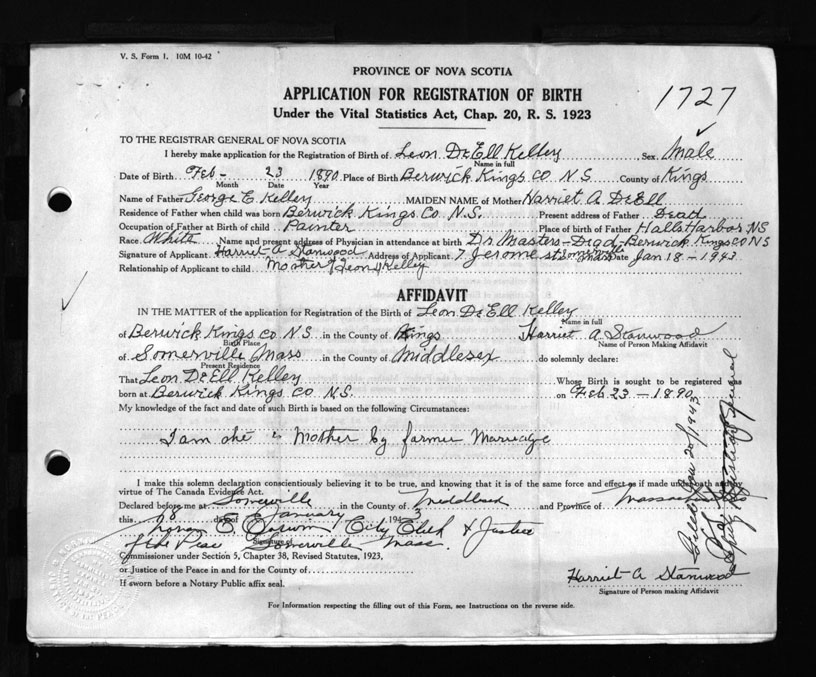 V. S. Form 1. 10M 10-42
PROVINCE OF NOVA SCOTIA
APPLICATION FOR REGISTRATION OF BIRTH
Under the Vital Statistics Act, Chap. 20, R. S. 1923
1727
TO THE REGISTRAR GENERAL OF NOVA SCOTIA
I hereby make application for the Registration of Birth of Leon DeEll Kelley Sex Male
Name in full
Date of Birth Feb - 23 1890 Place of Birth Berwick Kings Co N S County of Kings
Month Date Year
Name of Father George E Kelley MAIDEN NAME of Mother Harriet A DeEll
Residence of Father when child was born Berwick Kings Co N.S. Present address of Father Dead
Occupation of Father at Birth of child Painter Place of birth of Father Halls Harbor NS
Race White Name and present address of Physician in attendance at birth Dr Masters - Dead - Berwick Kings Co N S
Signature of Applicant Harriet A Stanwood Address of Applicant 7 Jerome st Somerville Mass Date Jan 18 - 1943
Relationship of Applicant to child Mother of Leon D Kelley
AFFIDAVIT
IN THE MATTER of the application for Registration of the Birth of Leon DeEll Kelley
Name in full
of Berwick Kings Co N S in the County of Kings Harriet A Stanwood
Birth Place Name of Person Making Affidavit
of Somerville Mass in the County of Middlesex do solemnly declare:
Present Residence
That Leon DeEll Kelley Whose Birth is sought to be registered was
born at Berwick Kings Co N.S. on Feb 23 - 1890
My knowledge of the fact and date of such Birth is based on the following Circumstances:
I am the Mother by former Marriage
I make this solemn declaration conscientiously believing it to be true, and knowing it is of the same force and effect as if made under oath and by
virtue of The Canada Evidence Act.
Declared before me at Somerville in the County of Middlesex and Province of Massachusetts
this 18 day of January 1943
Norman E Corwin City Clerk & Justice
of the Peace Somerville Mass.
Signature of
Commissioner under Section 5, Chapter 38, Revised Statutes, 1923,
or Justice of the Peace in and for the County of
If sworn before a Notary Public affix seal.
Harriet A Stanwood
Signature of Person making Affidavit
For Information respecting the filling out of this Form, see Instructions on the reverse side.